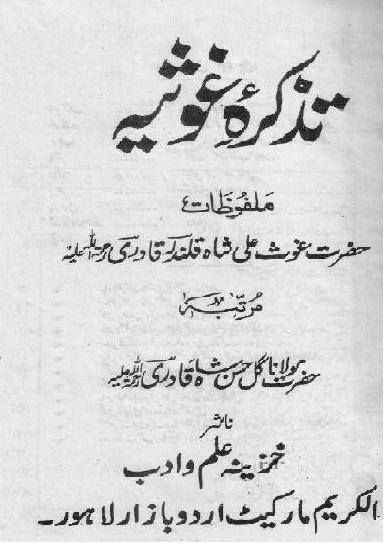 تذکرۂ غوثیہ
ملفوظات
حضرت غوث علی شاہ قلندر قادری رحمۃ اللہ علیہ
مرتبہ
حضرت مولانا گل حسن شاہ قادری رحمۃ اللہ علیہ
ناشر
خزینہ علم و ادب
الکریم مارکیٹ اردو بازار لاہور۔